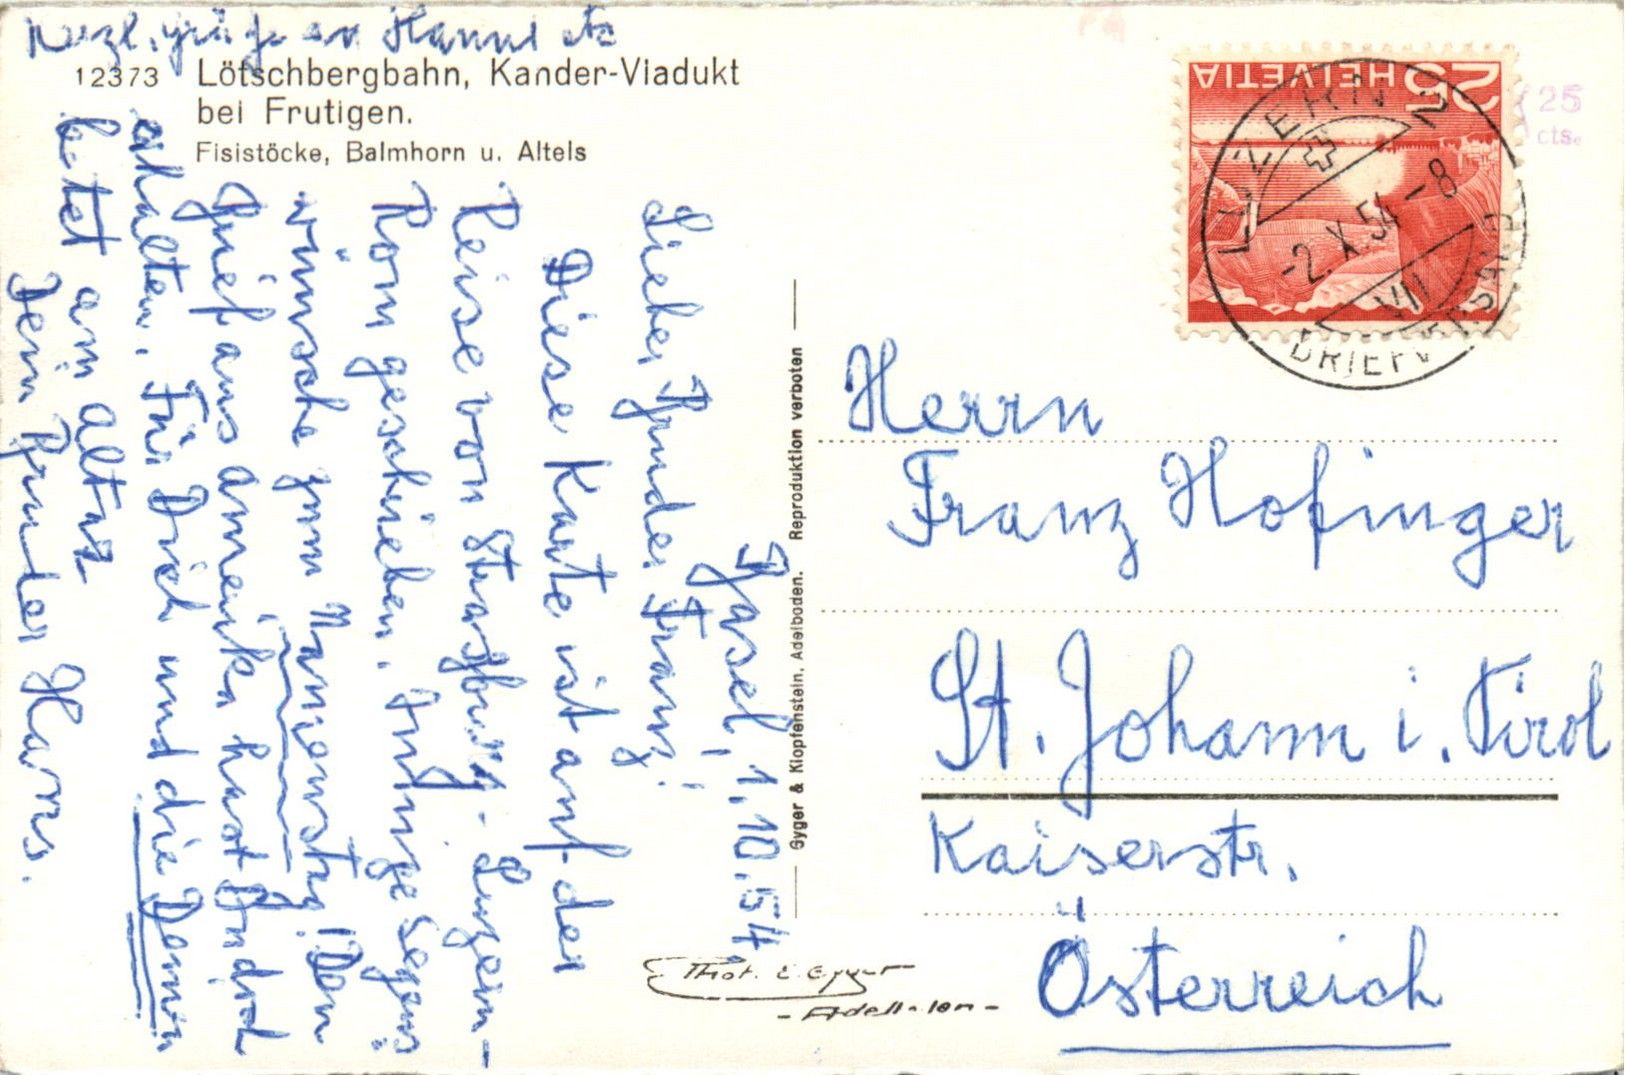 Herzl. Grüße an Hannel etc
12373 Lötschbergbahn, Kander-Viadukt
bei Frutigen.
Fisistöcke, Balmhorn u. Altels
Basel, 1.10.54
Lieber Bruder Franz!
Diese Karte ist auf der
Reise von Strassburg - Luzern -
Rom geschrieben. Innige Segens
wünsche zum Namenstag! Den
Brief aus Amerika hast Du doch
erhalten. Für Dich und die Deinen
betet am Altar
Dein Bruder Hans.
Gyger & Klopfenstein, Adelboden. Reproduktion verboten
Phot. E. Gyger
- Adelboden -
HELVETIA 25
LUZERN 2
-2.X.54-8
VII
BRIEFVERSAND
25
cts.
Herrn
Franz Hofinger
St. Johann i. Tirol
Kaiserstr.
Österreich